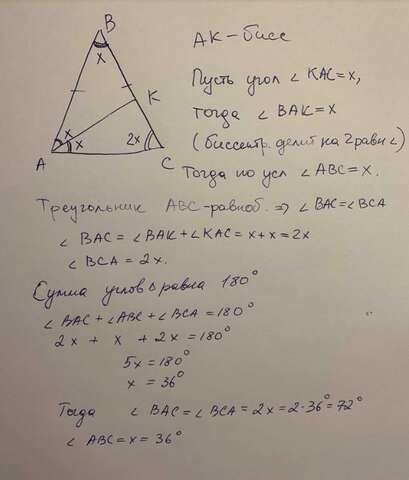 B
x
K
x
x
2x
A
C
AK - бисс
Пусть угол ∠ KAC = x,
тогда ∠ BAK = x
( биссектр. делит на 2 равн ∠)
Тогда по усл ∠ ABC = x.
Треугольник ABC - равноб. ⇒ ∠ BAC = ∠ BCA
∠ BAC = ∠ BAK + ∠ KAC = x + x = 2x
∠ BCA = 2x.
Сумма углов Δ равна 180°
∠ BAC + ∠ ABC + ∠ BCA = 180°
2x + x + 2x = 180°
5x = 180°
x = 36°
Тогда ∠ BAC = ∠ BCA = 2x = 2·36° = 72°
∠ ABC = x = 36°